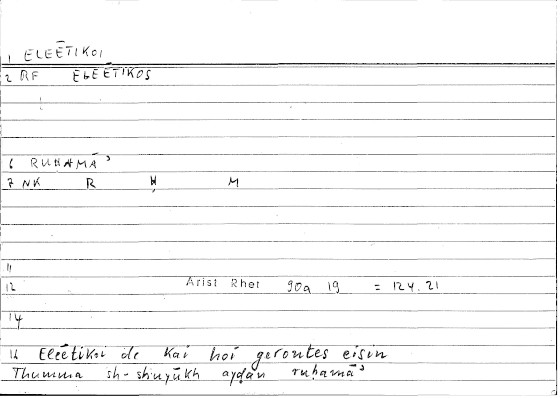 1 ELEĒTIKOI
2 RF ELEĒTIKOS
6 RUḤAMĀʾ
7 NK R Ḥ M
11
12 Arist Rhet 90a 19 = 124.21
14
16 Eleētikoi de kai hoi gerontes eisin
Thumma sh-shuyūkh ayḍan ruḥamāʾ